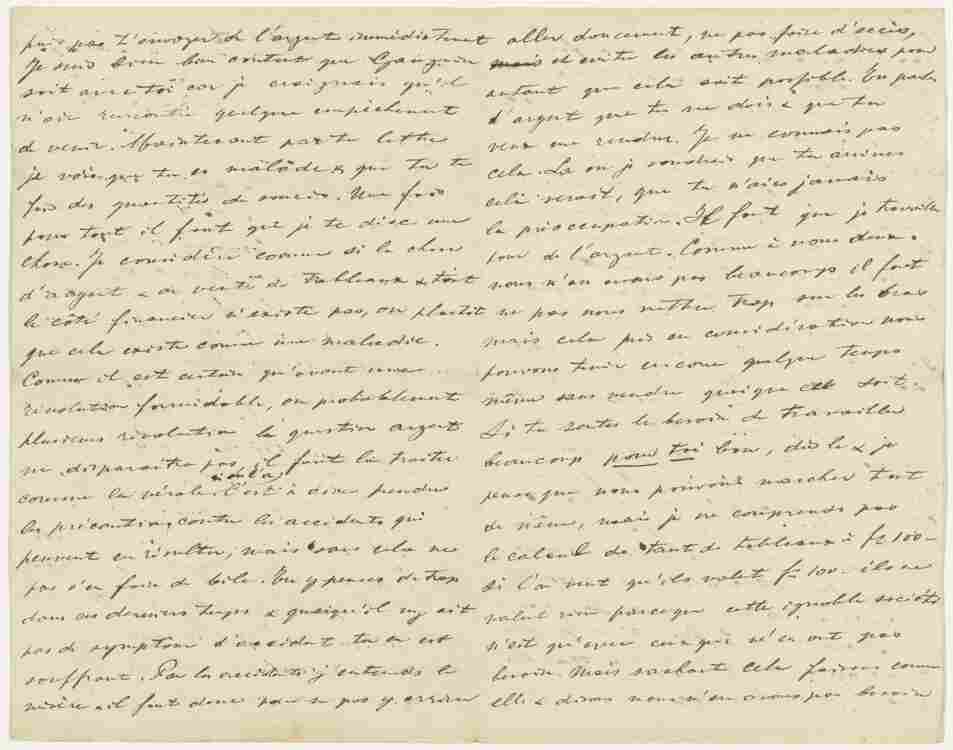 puis pas t'envoyer de l'argent immédiatement
Je suis bien bien content que Gauguin
soit avec toi car je craignais qu'il
n'aie rencontré quelque empèchement
de venir. Maintenant par ta lettre
je vois que tu es malade & que tu te
fais des quantités de soucis. Une fois
pour tout il faut que je te dise une
chose. Je considère comme si la chose
d'argent & de vente de tableaux & tout
le côté financier n'existe pas, ou plutôt
que cela existe comme une maladie.
Comme il est certain qu'avant une
révolution formidable, ou probablement
plusieurs révolution la question argent
ne disparaitra pas, il faut la traiter
comme la vérole. C'est à dire prendre
les précautions contre les accidents qui
peuvent en résulter, mais sans cela ne
pas s'en faire de bile. Tu y penses de trop
dans ces derniers temps & quoiqu'il n'y ait
pas de symptom d'accident tu en est
souffrant. Par les accidents j'entends la
misère & il faut donc pour ne pas y arriver
aller doucement, ne pas faire d'excès,
et eviter les autres maladies pour
autant que cela soit possible. Tu parles
d'argent que tu me dois & que tu
veux me rendre. Je ne connais pas
cela. Là où je voudrais que tu arrives
cela serait, que tu n'aies jamais
la préoccupation. Il faut que je travaille
pour de l'argent. Comme à nous deux
nous n'en avons pas beaucoup il faut
ne pas nous mettre trop sur les bras
mais cela pris en considération nous
pouvons tenir encore quelque temps
même sans vendre quoique ce soit.
Si tu sentes le besoin de travailler
beaucoup pour toi bon, dis le & je
pense que nous pouvons marcher tout
de même, mais je ne comprends pas
le calcul de tant de tableaux à fr 100-
si l'on veut qu'ils valent fr 100- ils ne
valent rien parceque cette ignoble société
n'est qu'avec ceux qui n'en ont pas
besoin. Mais sachant cela faisons comme
elle & disons nous n'en avons pas besoin